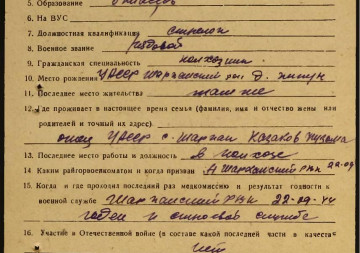 5. Образование
6. На ВУС
7. Должностная квалификация стрелок
8. Военное звание рядовой
9. Гражданская специальность колхозник
10. Место рождения УАССР Шарканский р-н д.
11. Последнее место жительства там же
12. Где проживает в настоящее время семья (фамилия, имя и отчество жены или
родителей и точный их адрес).
отец УАССР с. Шаркан Казаков
13. Последнее место работы и должность в колхозе
14. Каким райгорвоенкоматом и когда призван Шарканский РВК
15. Когда и где проходил последний раз медкомиссию и результат годности к
военной службе Шарканский РВК 22-09-44
годен к строевой службе
16. Участие в Отечественной войне (в составе какой последней части в качестве
нет